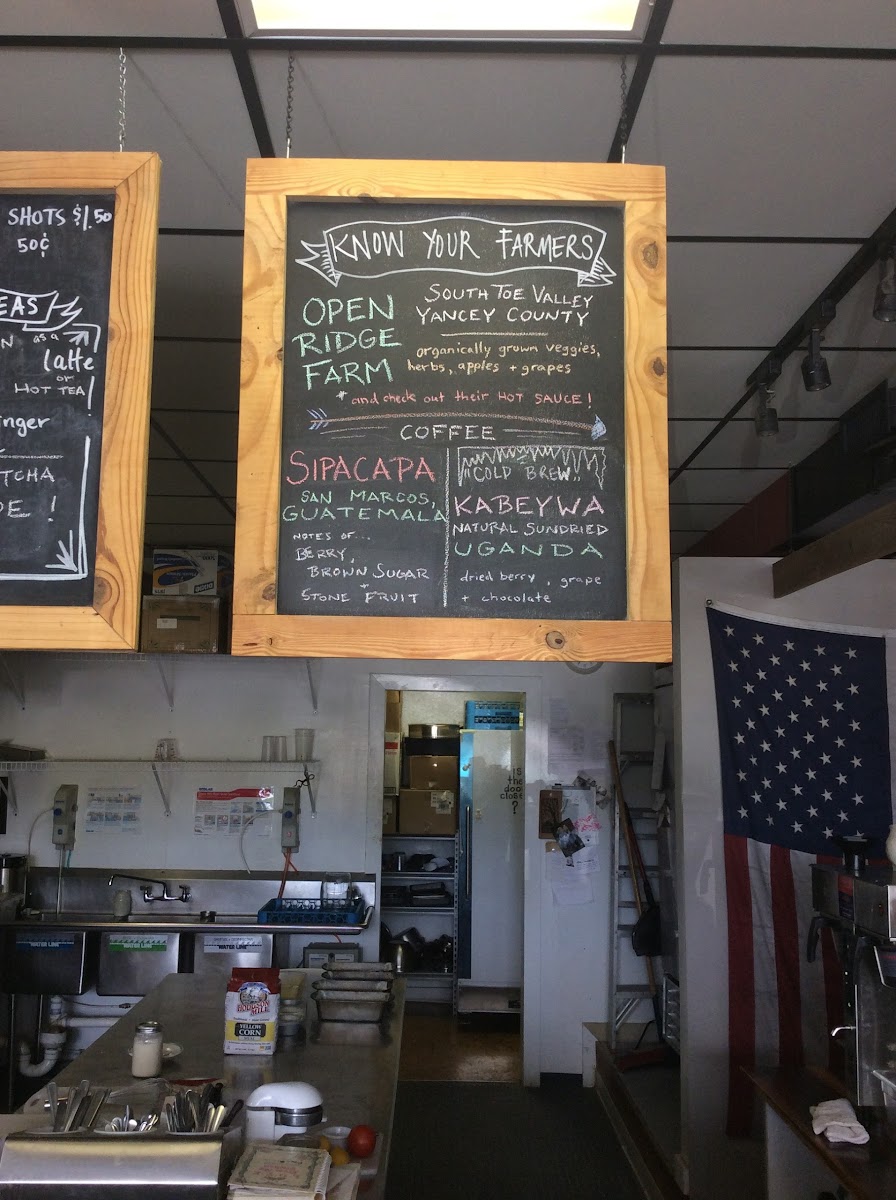 SHOTS $1.50
50¢
EAS
as a
latte
or
HOT TEA
inger
TCHA
DE !
KNOW YOUR FARMERS
OPEN
RIDGE
FARM
SOUTH TOE VALLEY
YANCEY COUNTY
organically grown veggies,
herbs, apples + grapes
* and check out their HOT SAUCE!
COFFEE
SIPACAPA
SAN MARCOS,
GUATEMALA
NOTES OF...
BERRY,
BROWN SUGAR
+
STONE FRUIT
COLD BREW
KABEYWA
NATURAL SUNDRIED
UGANDA
dried berry, grape
+ chocolate
is
the
door
closed
?
WATER LINE
WATER LINE
WATER LINE
HODGSON
MILL
YELLOW
CORN